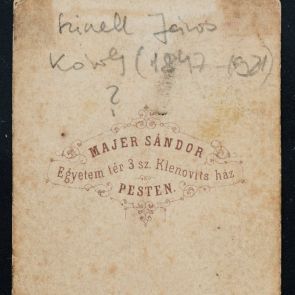 János
(1847-1921)
?
MAJER SÁNDOR
Egyetem tér 3 sz. Klenovits ház
PESTEN.